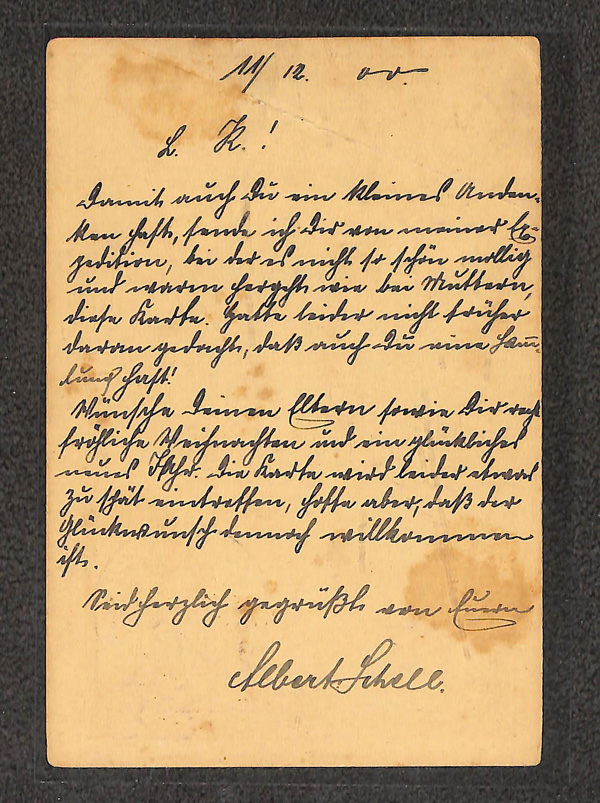 11/12. 00.
L. K.!
Damit auch Du ein kleines Anden-
ken hast, sende ich Dir von meiner Ex-
pedition, bei der es nicht so schön mollig
und warm hergeht wie bei Muttern,
diese Karte. Hatte leider nicht früher
daran gedacht, daß auch Du eine Samm-
lung hast!
Wünsche Deinen Eltern sowie Dir recht
fröhliche Weihnachten und ein glückliches
neues Jahr. Die Karte wird leider etwas
zu spät eintreffen, hoffe aber, daß der
Glückwunsch dennoch willkommen
ist.
Seid herzlich gegrüßt von Euerm
Albert Schell.